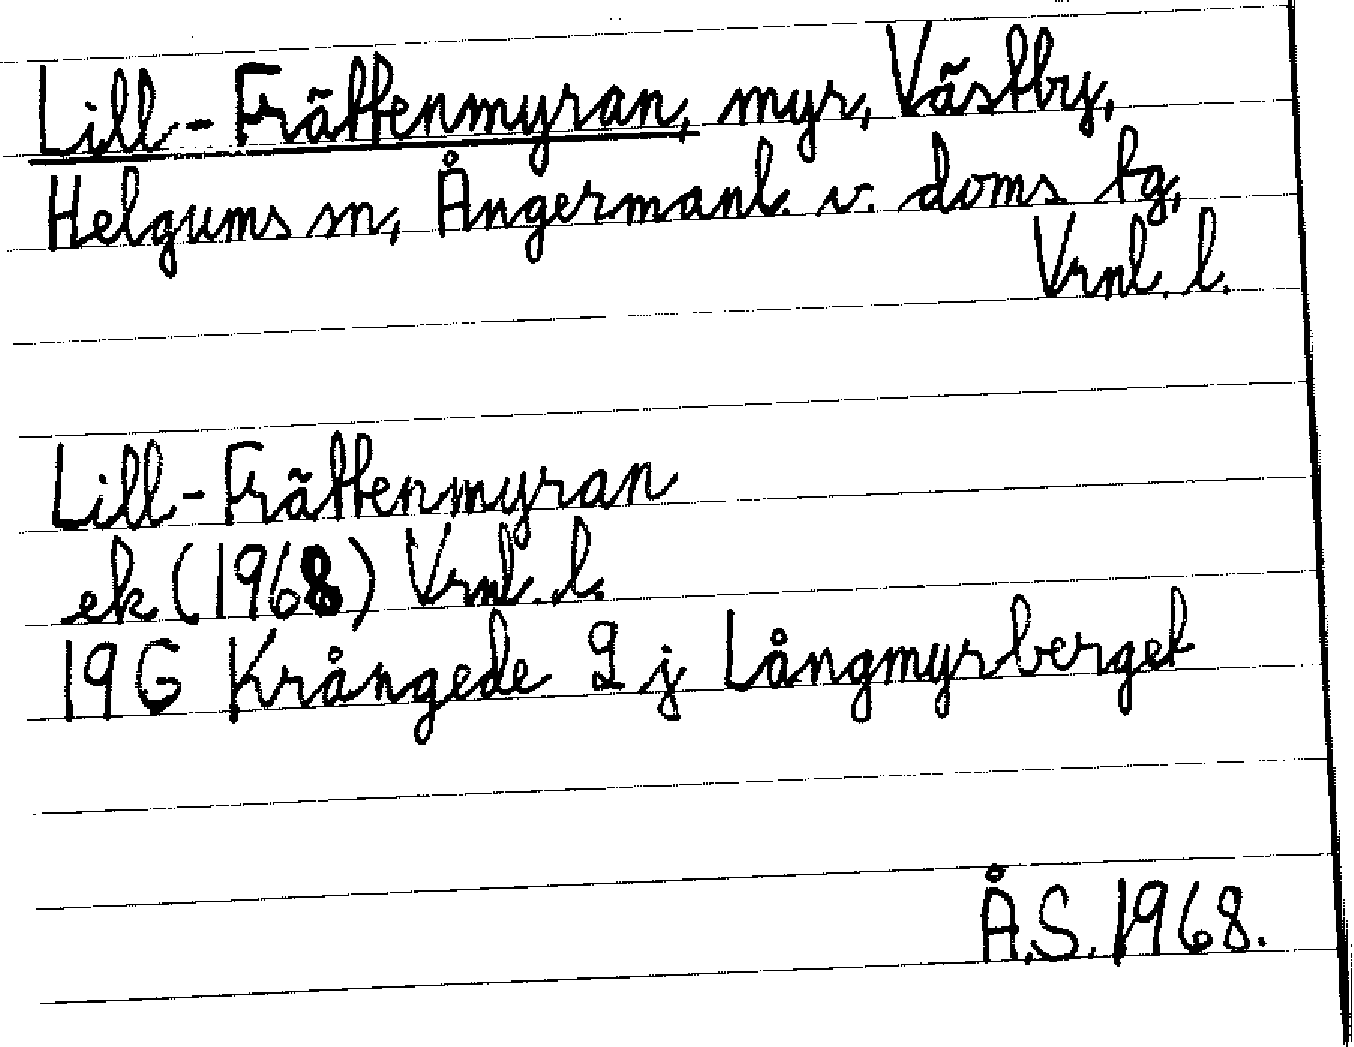 Lill-Frättenmyran, myr, Västby,
Helgums sn, Ångermanl. v. doms tg,
Vrnl. l.
Lill-Frättenmyran
ek (1968) Vrnl. l.
19G Krångede 9 j Långmyrberget
Å.S. 1968.